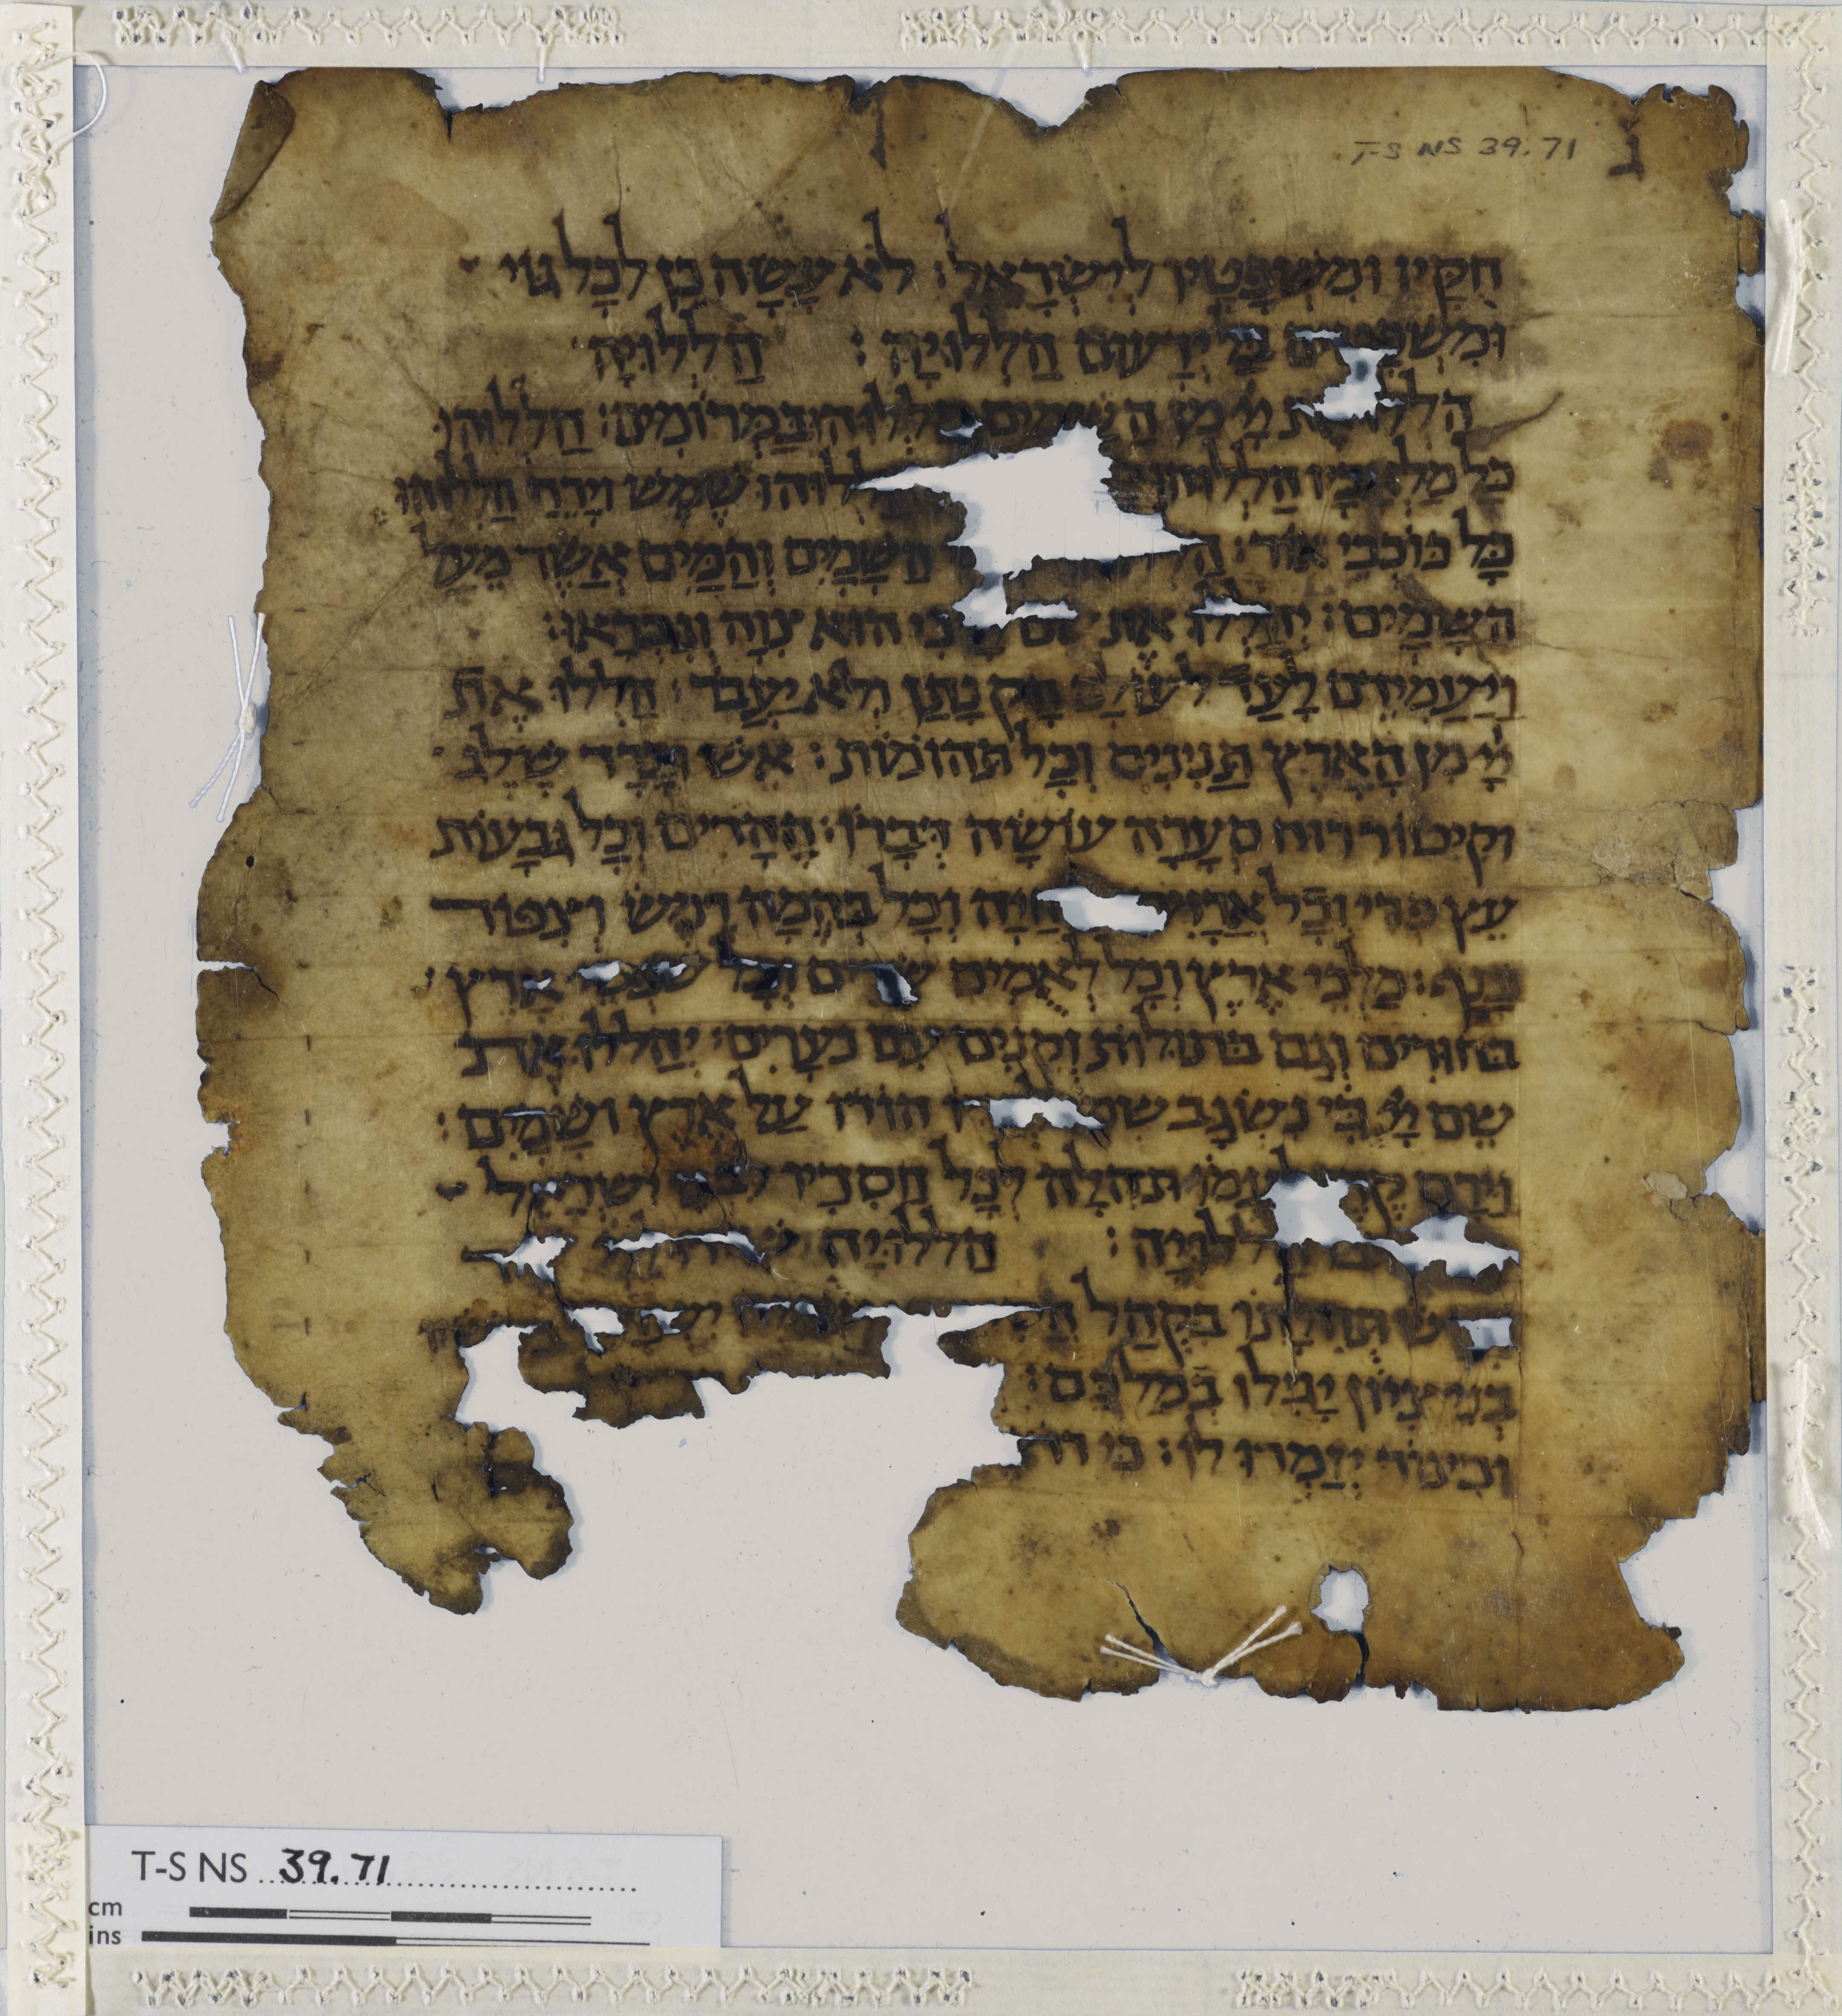 T-S NS 39.71
חקיו ומשפטיו לישראל : לא עשה כן לכל גוי
ומשפטים בל ידעום הללויה : הללויה
הללו את יי מן השמים הללוהו במרומים : הללוהו
כל מלאכיו הללוהו ללוהו שמש וירח הללוהו
כל כוכבי אור : השמים והמים אשר מעל
השמים : יהללו את שם יי כי הוא צוה ונבראו :
ויעמידם לעד לעולם חק נתן ולא יעבר : הללו את
יי מן הארץ תנינים וכל תהומות : אש וברד שלג
וקיטור רוח סערה עושה דברו : ההרים וכל גבעות
עץ פרי וכל ארזים חיה וכל בהמה רמש וצפור
כנף : מלכי ארץ וכל לאמים שרים וכל שפטי ארץ
בחורים וגם בתולות זקנים עם נערים : יהללו את
שם יי כי נשגב שמו הודו על ארץ ושמים :
וירם קרן לעמו תהלה לכל חסידיו לבני ישראל
ללויה : הללויה
חדש תהלתו בקהל
בני ציון יגילו במלכם :
וכינור יזמרו לו : כי רו
T-S NS 39.71
cm
ins